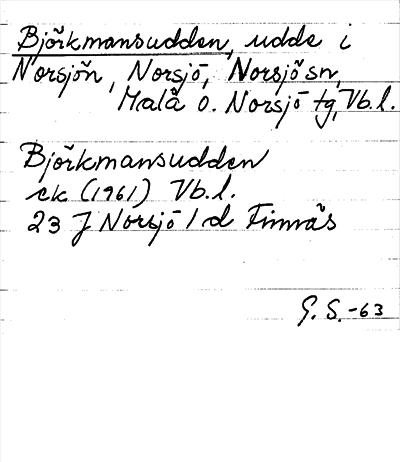 Björkmansudden, udde i
Norsjön, Norsjö, Norsjö sn,
Malå o. Norsjö tg, Vb.l.
Björkmansudden
ek (1961) Vb.l.
23 J Norsjö / d Finnäs
G. S. -63